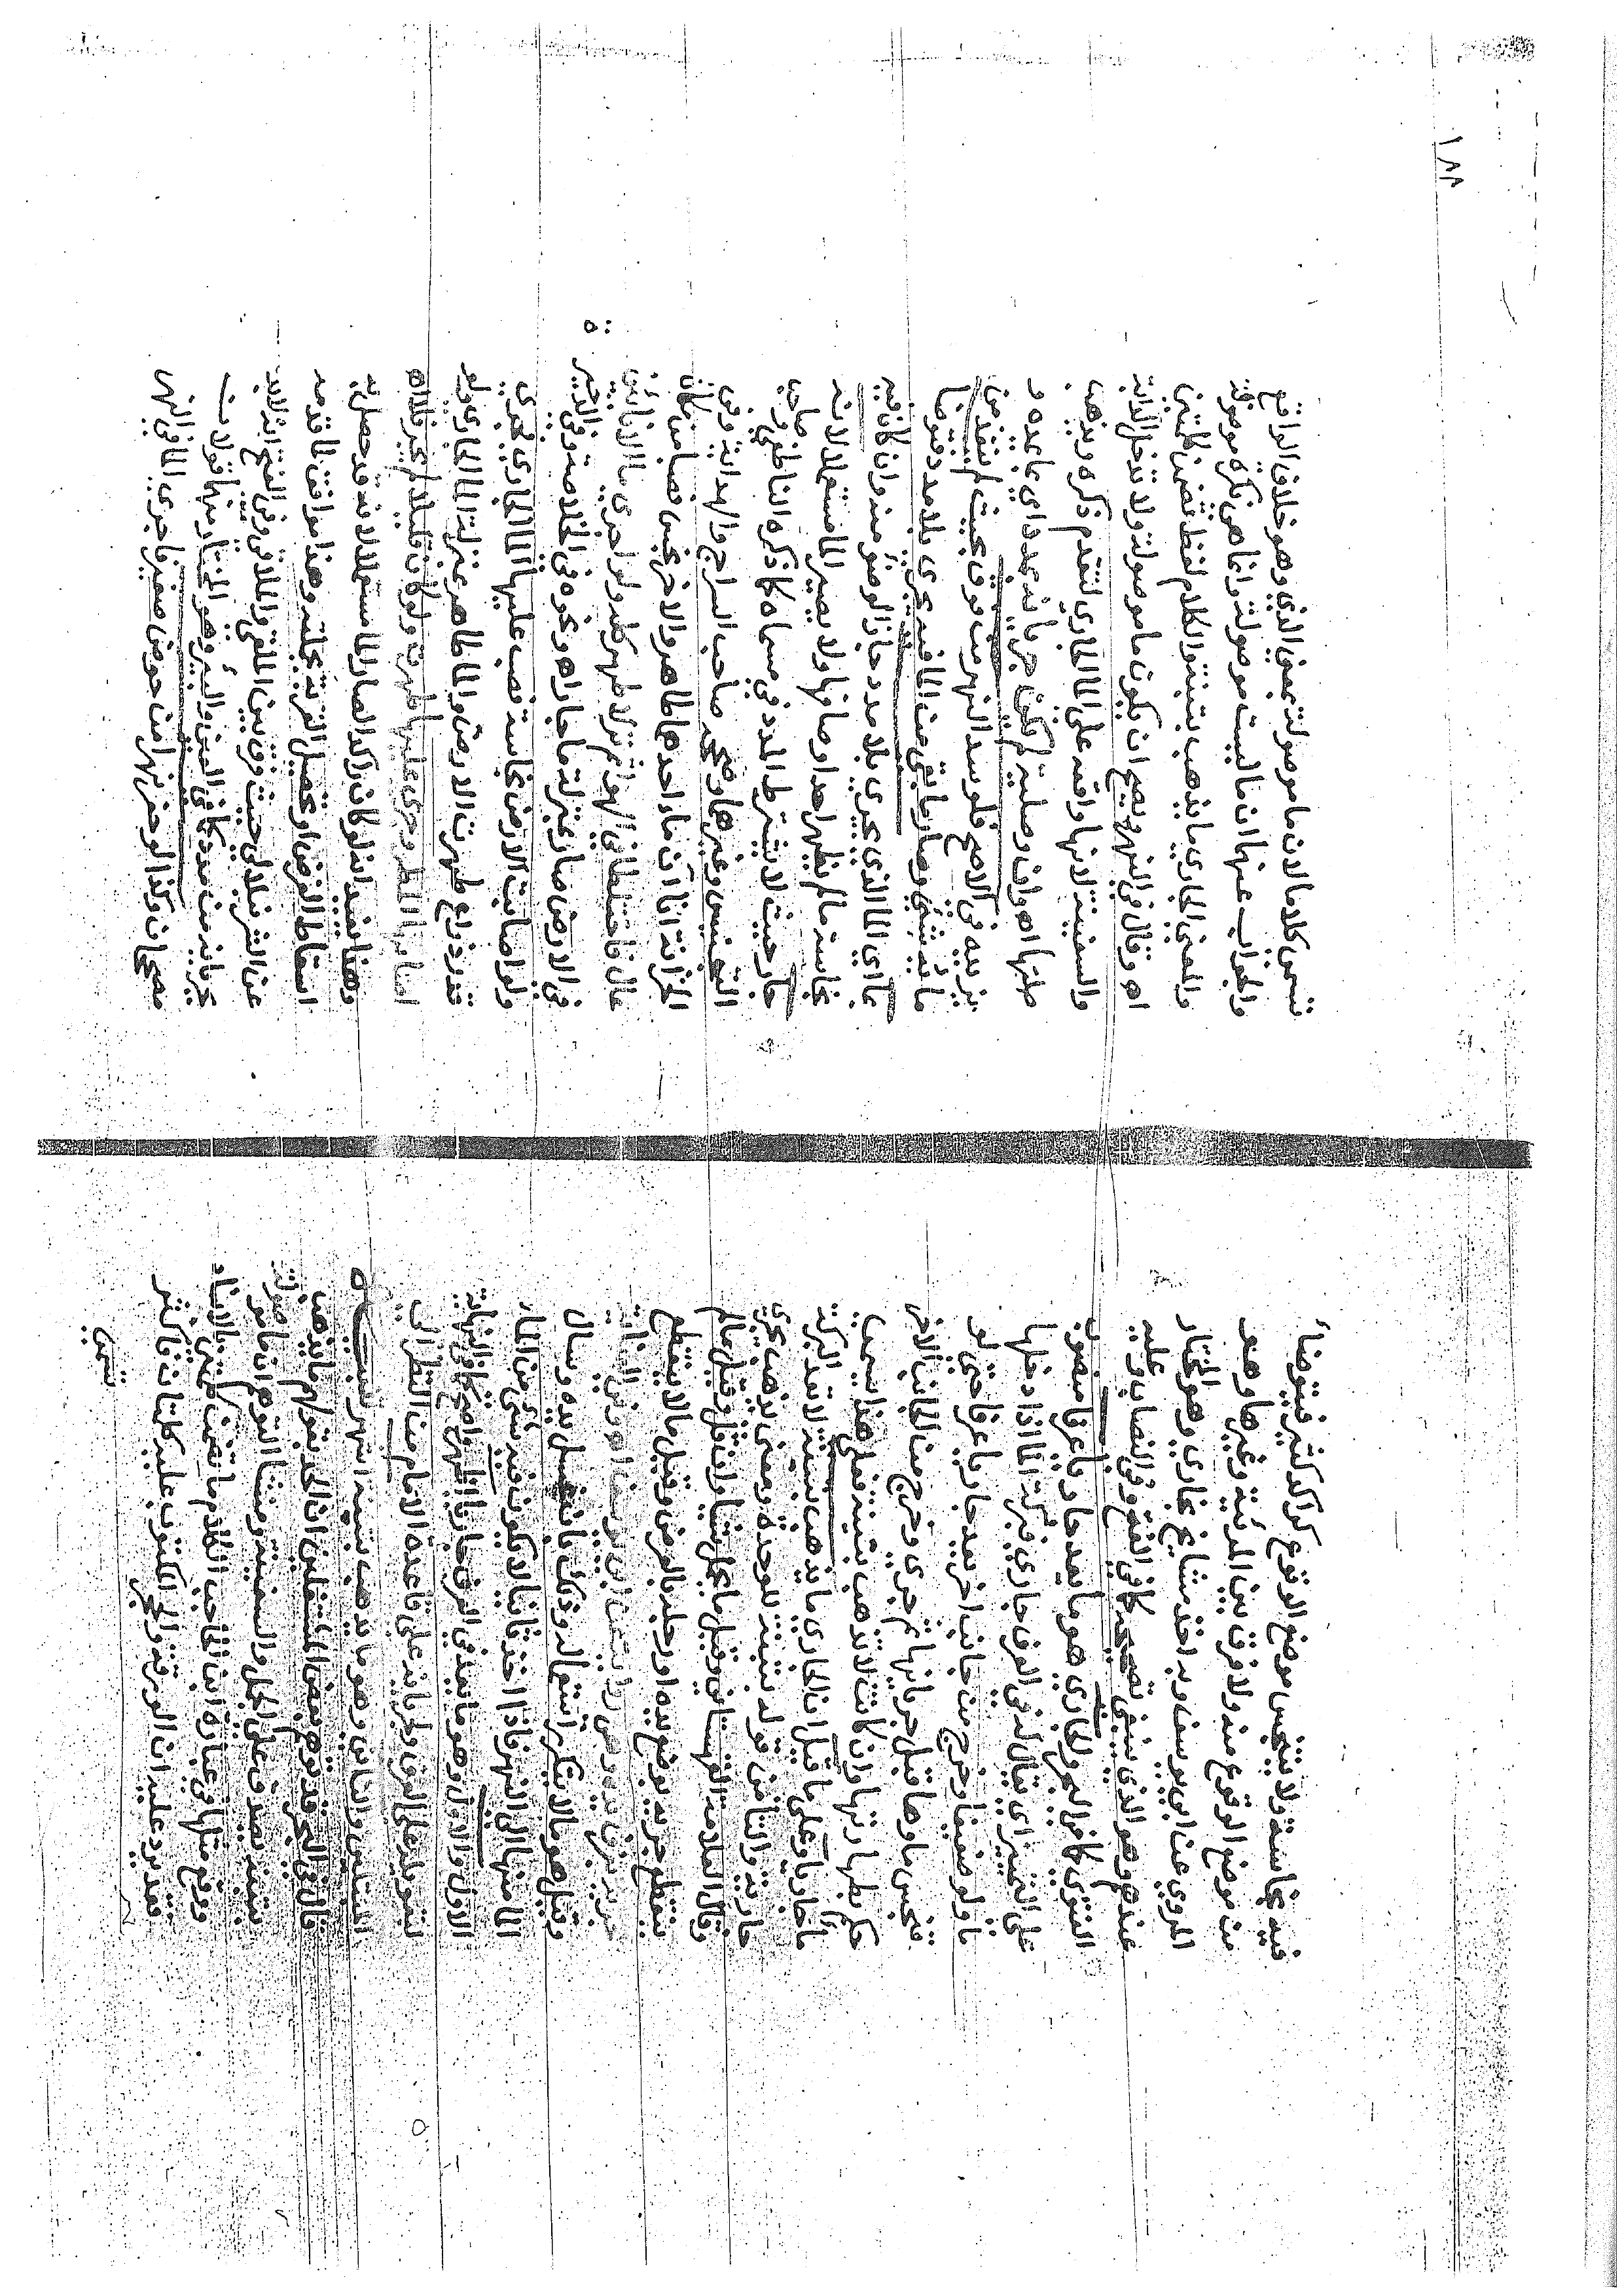 فيه نجاسة ولا يتنجس موضع الوقوع كراكد كثير فيتوضأ
من موضع الوقوع منه ولا فرق بين المرئية وغيرها وهو
المروي عن ابي يوسف وبه اخذ مشايخ بخارى وهو المختار
عندهم وهو الذي ينبغي تصحيحه كما في الفتح وفي النصاب وعليه
الفتوى كما في البحر والجاري هو ما يعد جاريا عرفا منصوب
على التمييز اي يقال له في العرف جاري فبركة الماء اذا دخلها
ماء ولو ضعيفا وخرج من جانب اخر يعد جاريا عرفا حتى لو
تنجس ماؤها قبل جريانها ثم جرى وخرج من الجانب الاخر
حكم بطهارتها وان كانت لا تذهب بتبنة فعلى هذا يسمى
ماء جاريا وعلى ما قيل ان الجاري ما يذهب بتبنة لا تعد البركة
جارية والتاء في قوله بتبنة للوحدة ومعنى يذهب يجري
وقال العلامة القهستاني وقيل ما يحمل شيئا وان قل وقيل ما لم
ينقطع جريه بوضع يده او رجله بالعرض وقيل ما لا ينقطع
جريه بغرف يديه وعن ابي يوسف
وقيل هو ما لا يتكرر استعماله وذلك بان غسل يده وسال
الماء منها الى النهر فاذا اخذ ثانيا لا يكون فيه شيء من الماء
الاول والاول وهو ما يعد في العرف جاريا اظهر واصح كما في النهاية
لتعويله على العرف وجريانه على قاعدة الامام من النظر الى
المبتلين والثاني وهو ما يذهب بتبنة اشهر تنبيه
قال في البحر قد توهم بعض المشتغلين ان الحد بقولهم ما يذهب
بتبنة يصدق على الجمل والسفينة ومنشا التوهم ان ما موصولة
ووقع مثلها في عبارة ابن الحاجب الكلام ما تضمن كلمتين بالاسناد
فقد يرد عليه ان الورقة والحجر المكتوب عليه كلمتان فاكثر
تسمى
١٨٨
تسمى كلاما لان ما موصولة بمعنى الذي وهو خلاف الواقع
والجواب عنها ان ما ليست موصولة وانما هي نكرة موصوفة
والمعنى الجاري ماء يذهب بتبنة والكلام لفظ تضمن كلمتين
اه وقال في النهر ويصح ان يكون ما موصولة ولا تدخل الدابة
والسفينة لانها واقعة على الماء الجاري لتقدم ذكره ويذهب
صلتها اه وان وصلية لم يكن جريانه بمدد اي بما يمده و
يزيده في الاصح فلو سد النهر من فوق بحيث لم ينفذ من
مائه شيء وصار ما بقي من الماء فيه يجري بلا مدد فتوضا
بما اي الماء الذي يجري بلا مدد جاز الوضوء منه وان كان فيه
نجاسة ما لم يظهر احد اوصافها ولا يصير الماء مستعملا لانه
جار حيث لا يشترط المدد في مسماه كما ذكره الناطفي وصاحب
التجنيس وغيرهما وصححه صاحب السراج والهداية وفي
الخزانة اناآن ماء احدهما طاهر والاخر نجس فصبا من مكان
عال فاختلطا في الهواء ثم نزلا طهر كله ولو اجرى ماء الاناءين
في الارض صار بمنزلة ماء جار اه ونحوه في الخلاصة وفي الذخيرة
ولو اصابت الارض نجاسة فصب عليها الماء الجاري فجرى
قدر ذراع طهرت الارض والماء طاهر بمنزلة الماء الجاري ولو
اصابها المطر وجرى عليها طهرت ولو كان قليلا لم يجر فلا اه
وهذا يفيد انه لو كان راكدا لصار الماء مستعملا لانه قد حصل به
اسقاط الفرض او تحصيل القربة بجملته وهذا موافق لما قدمه
عن الشرنبلالي حيث فرق بين الملقي والملاقي وفي الفتح انه لا بد
جريانه من مدد كما في العين والبئر وهو المختار منها قولا ت
فصح ان وكذا لو حفر نهر من حوض صغير فاجرى الماء في النهر